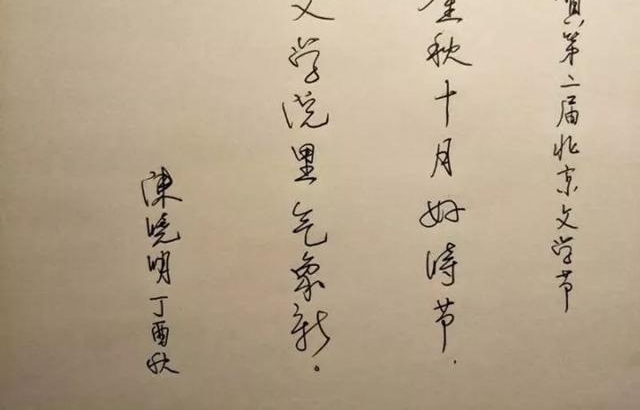 贺第二届北京文学节
金秋十月好时节.
文学院里气象新。
陳晓明丁酉秋